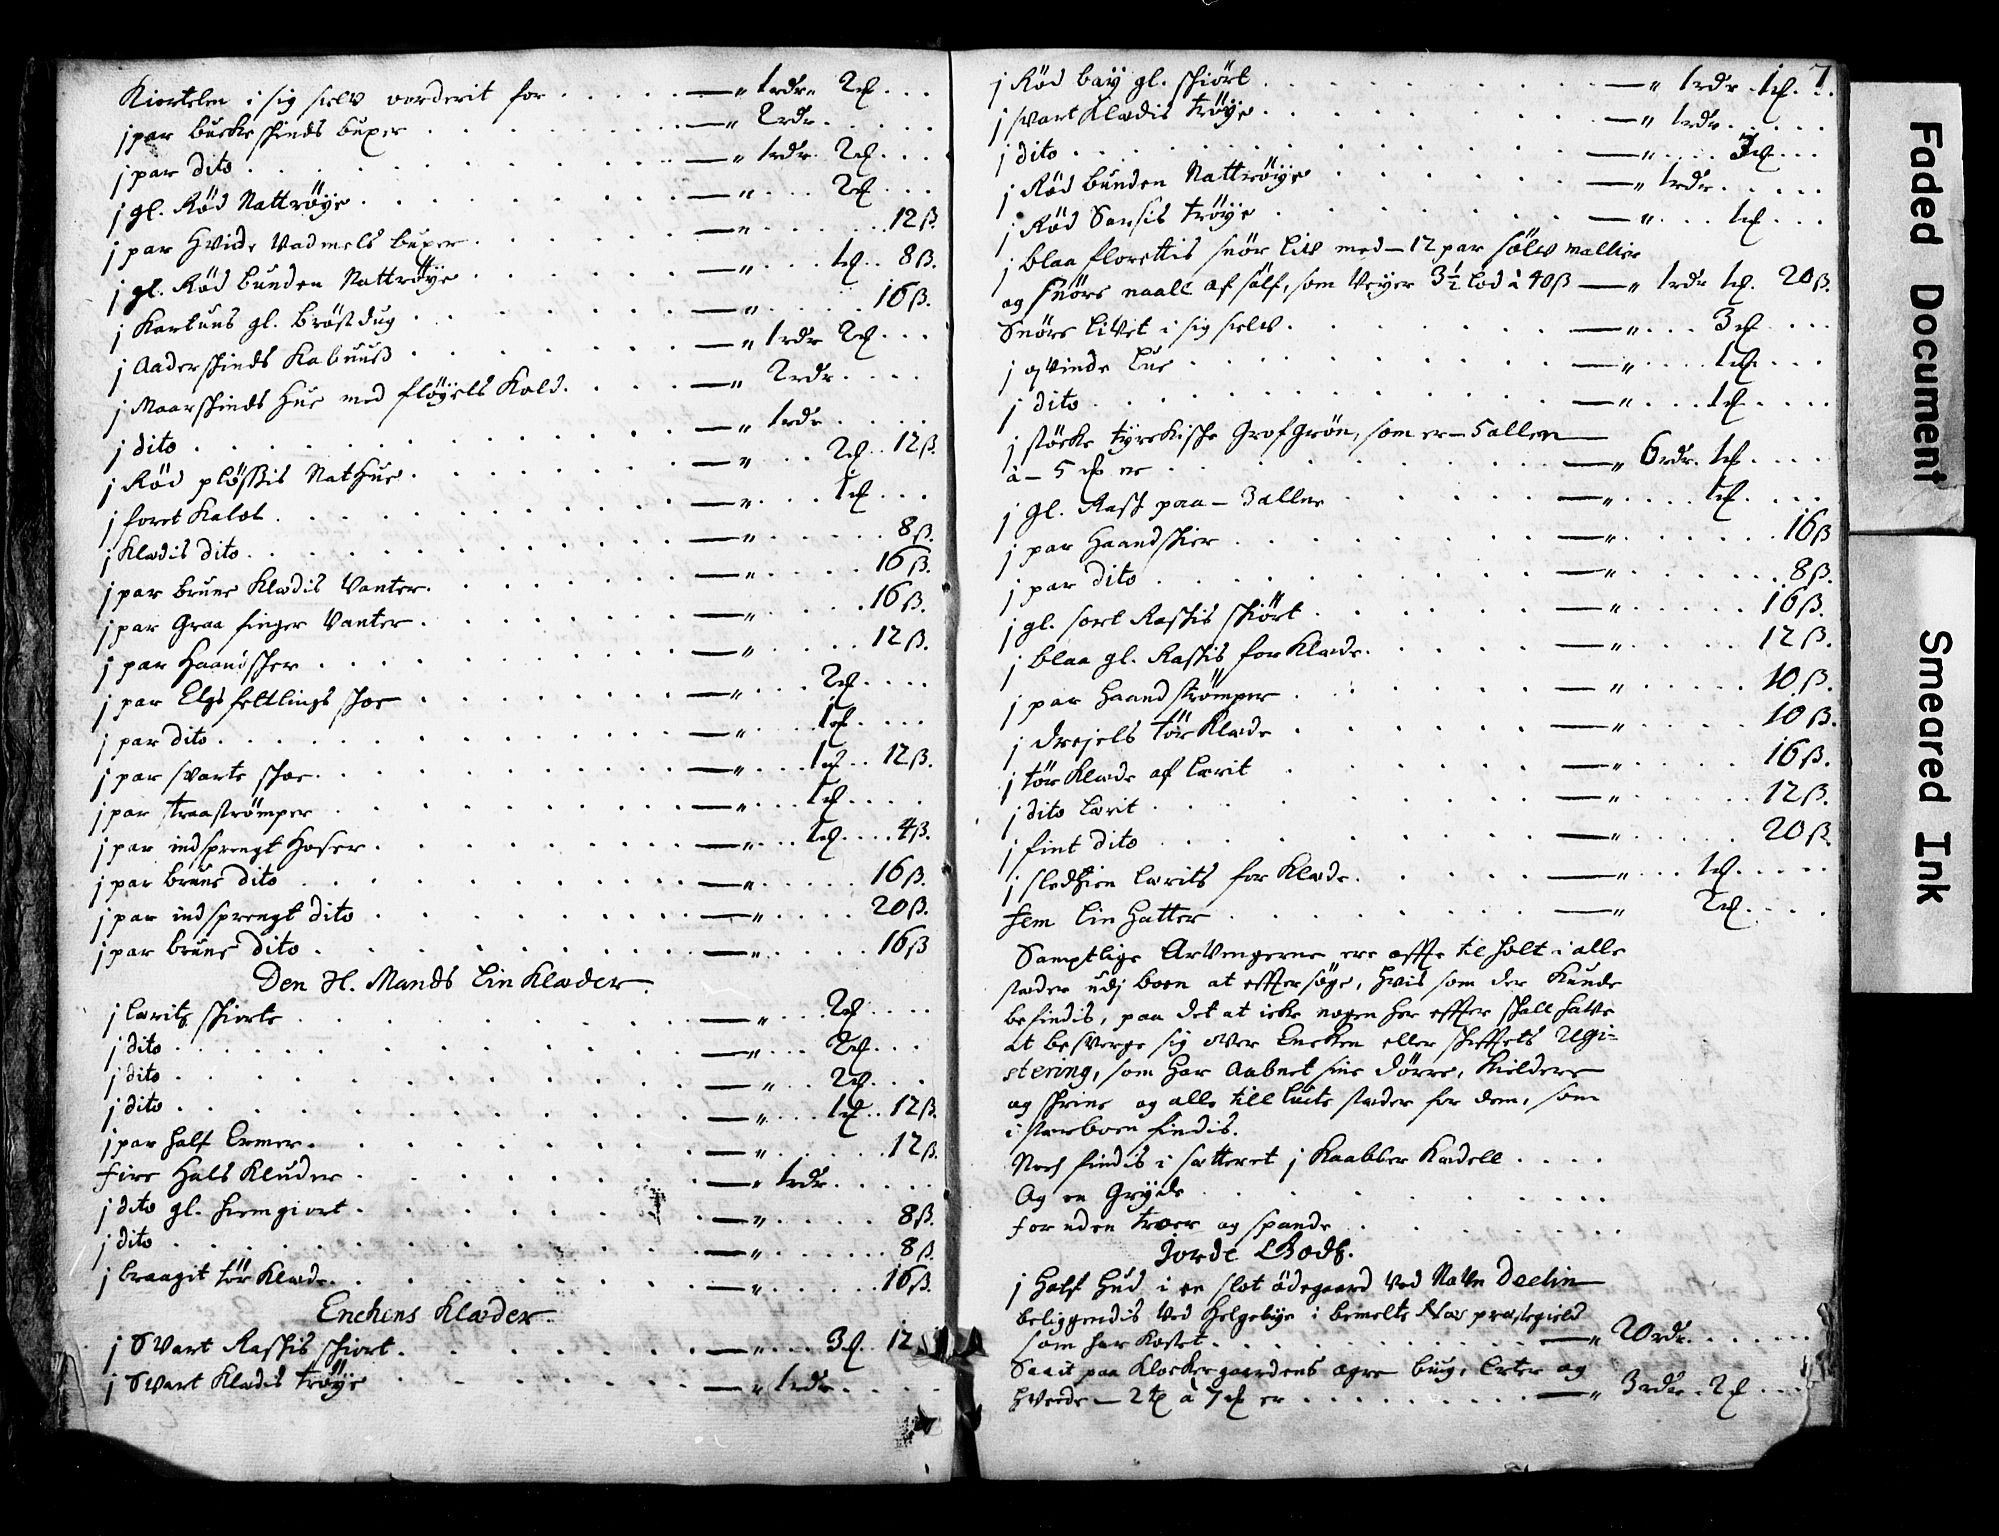 Kiortelen i sig selv vorderit for . . . . . — " 1 rdr " 2 ℳ . . .
j par buckeskinds buxer . . . . . — " 2 rdr . . . .
j par dito . . . . . — " 1 rdr 2 ℳ . . .
j gl. Rød Nattrøye . . . . . — " . . . 2 ℳ . . .
j par Hvide Vadmels buxer . . . . . — " . . . . 12 ß.
j gl. Rød bunden Nattrøye . . . . . — " . . . 1 ℳ . . 8 ß.
j Kartuns gl. brøstdug . . . . . — " . . . . 16 ß.
j Aaderskinds Kabuuß . . . . . — " 1 rdr 2 ℳ . . .
j Maarskinds Hue med fløyels Kold . . . . — " 2 rdr . . . .
j dito . . . . . — " 1 rdr . . . .
j Rød pløssis Nathue . . . . . — " . . 2 ℳ . 12 ß.
j foret Kalot . . . . . — " . . . 1 ℳ . . .
j Klædis dito . . . . . — " . . . . 8 ß.
j par brune Klædis Vanter . . . . . — " . . . . 16 ß.
j par Graa finger Vanter . . . . . — " . . . . 16 ß.
j par Haandsker . . . . . — " . . . . 12 ß.
j par Elgs feltlings skoe . . . . . — " . . . 2 ℳ . . . .
j par dito . . . . . — " . . . 1 ℳ . . . .
j par svarte skoe . . . . . — " . . . 1 ℳ . . 12 ß.
j par traastrømper . . . . . — " . . . 1 ℳ . . . .
j par indsprengt Hoser . . . . . — " . . . 1 ℳ . . . 4 ß.
j par brune dito . . . . . — " . . . . 16 ß.
j par indsprengt dito . . . . . — " . . . . 20 ß.
j par brune dito . . . . . — " . . . . 16 ß
Den Sl. Mands Lin Klæder.
j lærits skiorte . . . . . — " . . . 2 ℳ . . . .
j dito . . . . . — " . . . 2 ℳ . . .
j dito . . . . . — " . . . 2 ℳ . . .
j dito . . . . . — " . . . 1 ℳ . . 12 ß.
j par half Ermer . . . . . — " . . . . 12 ß.
fire Hals Kluder . . . . . — " 1 rdr . . . .
j dito gl. hiemgiort . . . . . — " . . . . 8 ß.
j dito . . . . . — " . . . . 8 ß.
j braagit tør Klæde . . . . . — " . . . . 16 ß.
Enckens Klæder.
j Svart Raskis skiort . . . . . — " . . . 3 ℳ . 12
j Svart Klædis trøye . . . . . — " 1 rdr . . . .
7
j Rød bay gl. skiørt . . . . . — " 1 rdr 1 ℳ . . .
j svart Klædis trøye . . . . . — " 1 rdr . . . .
j dito . . . . . — " . . . 3 ℳ . . .
j Rød bunden Nattrøye . . . . . — " 1 rdr . . . .
j Rød Sarsis trøye . . . . . — " . . . 1 ℳ . . .
j blaa florettis snør Liv med — 12 par sølv mallier
og snøre naall af sølf, som Veyer 3½ lod à 40 ß — " 1 rdr 1 ℳ. 20 ß.
Snøre Livet i sig selv . . . . . — " . . . 3 ℳ . . .
j qvinde Lue . . . . . — " . . . 1 ℳ . . .
j dito . . . . . — " . . . 1 ℳ . . . .
j støcke tyrckische Grofgrøn, som er — 5 allen
à — 5 ℳ er . . . . . — " 6 rdr. 1 ℳ . . . .
j gl. Rask paa — 3 aller . . . . . — " . . . 1 ℳ . . . .
j par Haandskier . . . . . — " . . . . 16 ß
j par dito . . . . . — " . . . . 8 ß.
j gl. sort Raskis skiørt . . . . . — " . . . . 16 ß.
j blaa gl. Raskis forKlæde . . . . . — " . . . . 12 ß.
j par Haand strømper . . . . . — " . . . . 10 ß.
j drejels tørKlæde . . . . . — " . . . . 10 ß.
j tørKlæde af lærit . . . . . — " . . . . 16 ß.
j dito lærit . . . . . — " . . . . 12 ß.
j fint dito . . . . . — " . . . . 20 ß.
j sledtien lærits for Klæde . . . . . — " . . . 1 ℳ . . . .
fem Lin Hatter . . . . . — " 2 ℳ . . . .
Samptlige Arvingerne ere offte til holt i alle
stæder udj boen at efftersøge, hvis som der Kunde
befindis, paa det at icke nogen her effter skall hafve
at besverge sig over Encken eller skifftets Regi-
stering, som har Aabnet sine dørre, Kieldere
og skrine og alle tillLucte stæder for dem, som
i stærboen findis.
Noch findis i sætteret j Kaabber Kædell . . . .
Og en Gryde . . . . .
foruden træer og spande . . . . .
Jorde Godß.
j Half Hud i en slet ødegaard Ved Navn Deelin
beliggendis Ved Helgebye i bemelte Næs præstegield
som har Kostet . . . . . — " 20 rdr. . . . .
Saait paa Klockergaardens agre biug, Erter og
hvede — 2 tℓ à 7 ℳ er . . . . . — " 3 rdr. 2 ℳ . . .
Faded Document
Smeared Ink